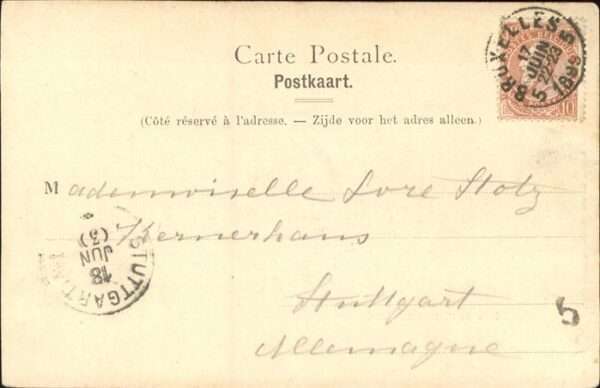 Carte Postale.
Postkaart.
(Côté réservé à l'adresse. — Zijde voor het adres alleen.)
BRUXELLES 5
17
JUIN
22-23
1899
5
10
Mademoiselle Lore Stolz
Kernerhaus
Stuttgart
Allemagne
STUTTGART
18
JUN
(3)
5